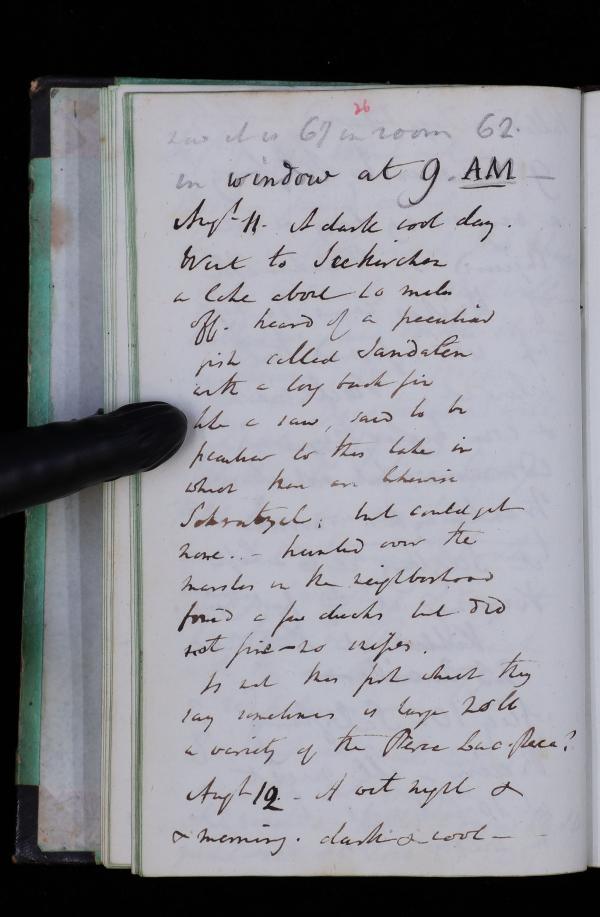 26
now it is 67 in room 62.
in window at 9. AM
Augt 11. A dark cool day.
Went to Seekirchen
a lake about 10 miles
off. heard of a peculiar
fish called Sandalen
with a long back fin
like a saw, said to be
peculiar to this lake in
which there are likewise
; but could get
none. - hunted over the
marshes in the neighborhood
found a few ducks but did
not fire - no snipes.
Is not this fish which they
say sometimes is large 20 lb
a variety of the Perca ?
Augt 12 - A wet night &
& morning. dark & cool -